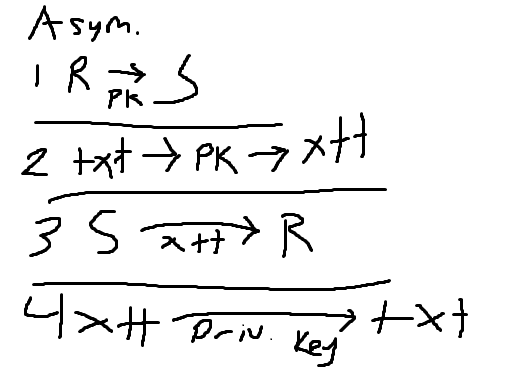 Asym.
1 R → PK S
2 txt → PK → xtt
3 S → xtt R
4 xtt → Priv. Key txt